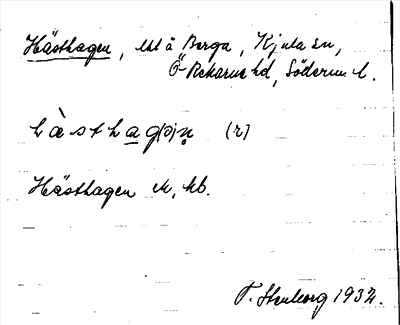 Hästhagen, lht å Berga, Kjula sn,
Ö Rekarne hd, Söderm. l.
hàsthag(ə)n̥ (r)
Hästhagen ek, hb.
1932.